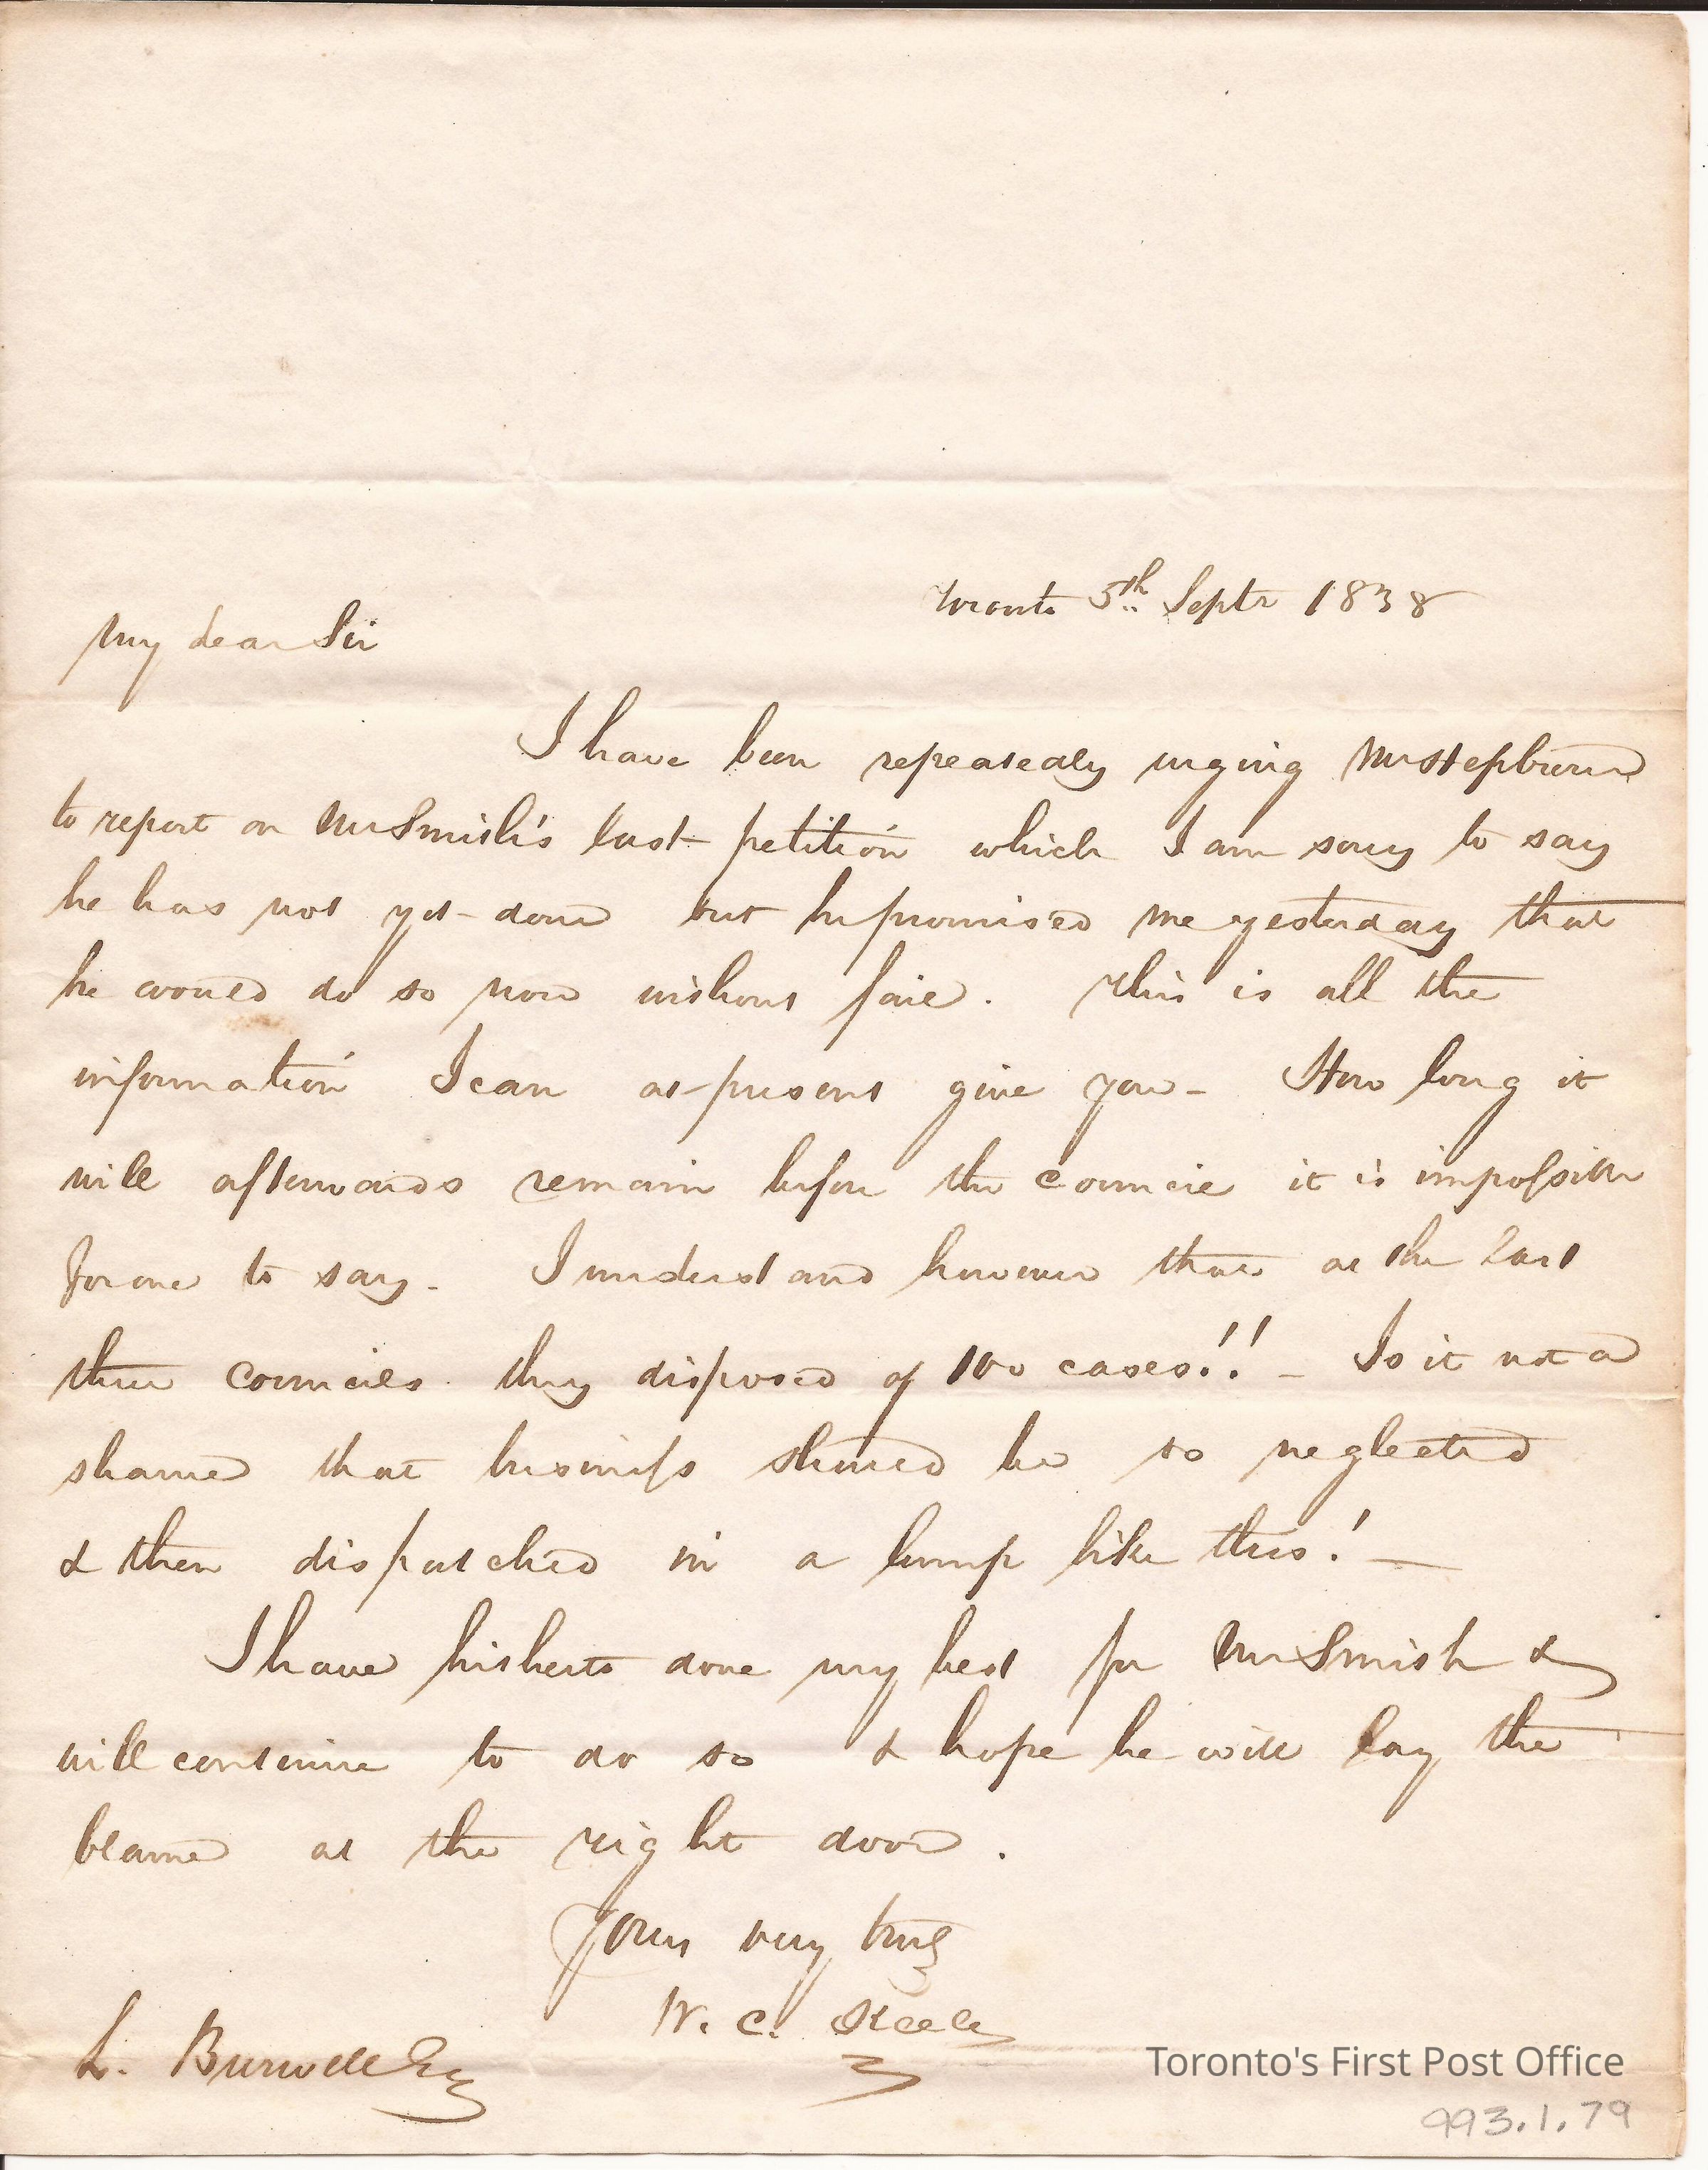 Toronto 5th Septr 1838
My dear Sir
I have been repeatedly urging Mr Hepburn
to report on Mr Smith's last petition which I am sorry to say
he has not yet done but he promised me yesterday that
he would do so now without fail. This is all the
information I can at present give you - How long it
will afterwards remain before the Council it is impossible
for me to say - I understand however that at the last
three Councils they disposed of 100 cases!! - Is it not a
shame that business should be so neglected
& then dispatched in a lump like this! -
I have hitherto done my best for Mr Smith &
will continue to do so & hope he will lay the
blame at the right door.
Yours very truly
W. C. Keele
L. Burwell Esq
Toronto's First Post Office
993.1.79